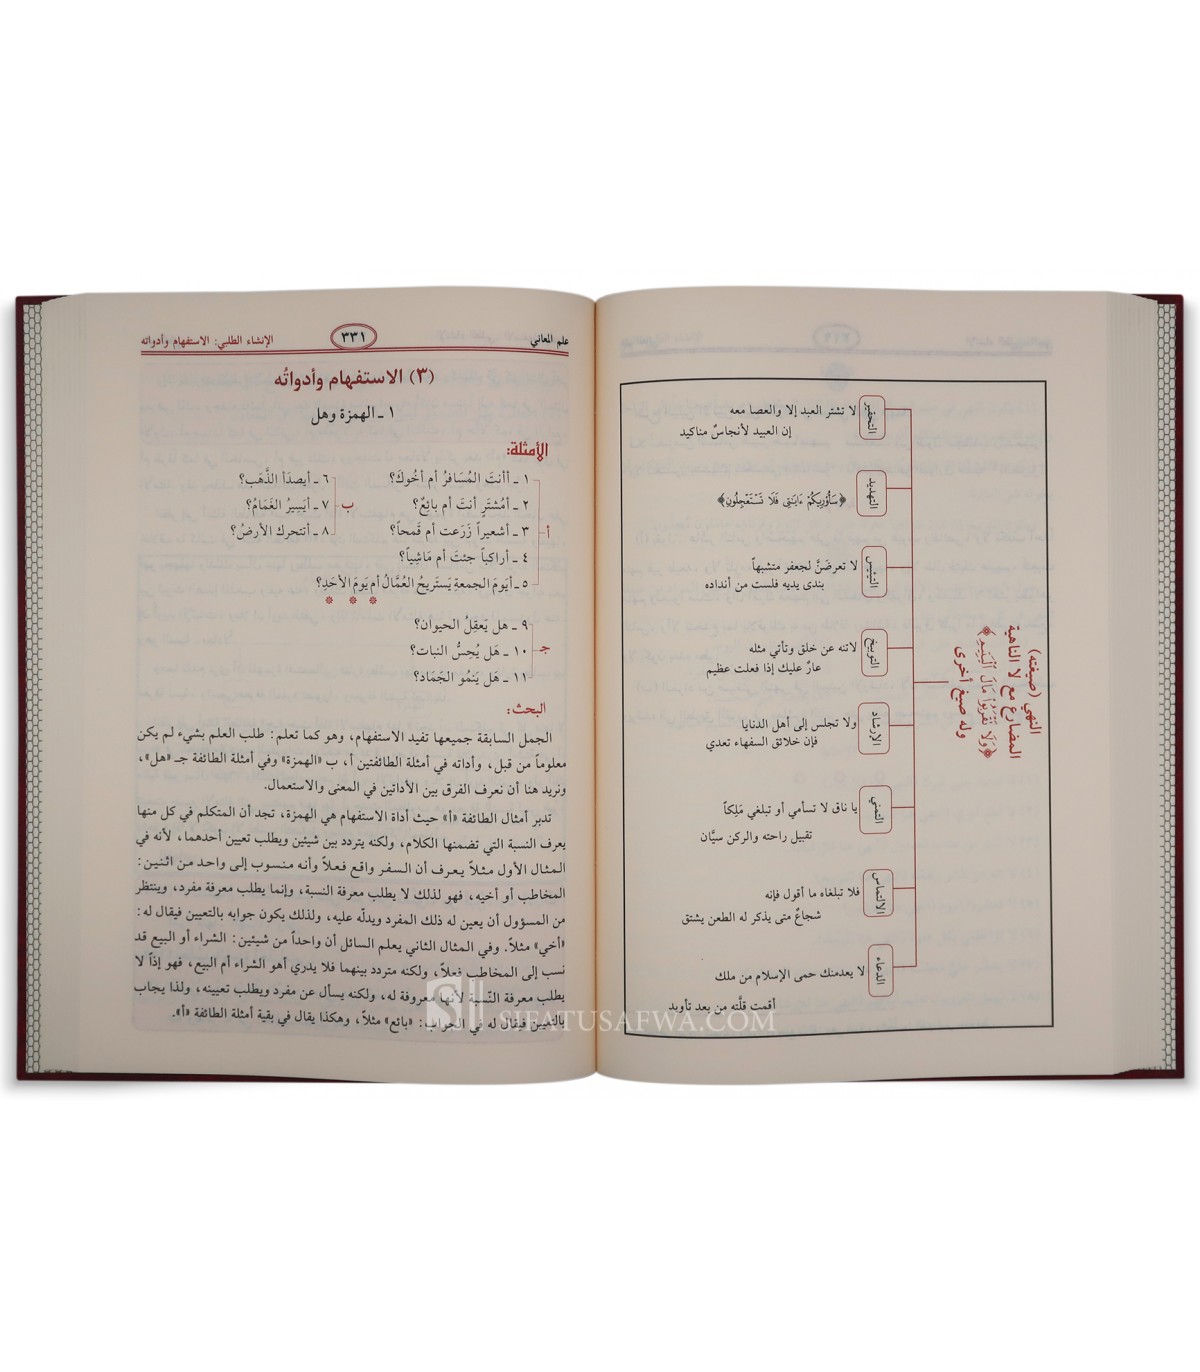 النهي (صيغته)
المضارع مع لا الناهية
﴿وَلَا تَقْرَبُوا۟ مَالَ ٱلْيَتِيمِ﴾
وله صيغ أخرى
التحقير
لا تشتر العبد إلا والعصا معه
إن العبيد لأنجاسٌ مناكيد
التهديد
﴿سَأُو۟رِيكُمْ ءَايَـٰتِى فَلَا تَسْتَعْجِلُونِ﴾
التيئيس
لا تعرضَنَّ لجعفر متشبهاً
بندى يديه فلست من أنداده
التوبيخ
لاتنه عن خلق وتأتي مثله
عارٌ عليك إذا فعلت عظيم
الإرشاد
ولا تجلس إلى أهل الدنايا
فإن خلائق السفهاء تعدي
التمني
يا ناق لا تسأمي أو تبلغي مَلِكاً
تقبيل راحته والركن سيَّان
الالتماس
فلا تبلغاه ما أقول فإنه
شجاعٌ متى يذكر له الطعن يشتق
الدعاء
لا يعدمنك حمى الإسلام من ملك
أقمت قلَّته من بعد تأويد
علم المعاني
٣٣١
الإنشاء الطلبي: الاستفهام وأدواته
(٣) الاستفهام وأدواتُه
١ ـ الهمزة وهل
الأمثلة:
أ
١ ـ أأنتَ المُسَافرُ أم أخُوكَ؟
٢ ـ أمُشتَرٍ أنتَ أم بائِعٌ؟
٣ ـ أشعيراً زَرَعت أم قَمحاً؟
٤ ـ أراكباً جئتَ أم مَاشِياً؟
٥ ـ أيَومَ الجمعةِ يَستَريحُ العُمَّالُ أم يَومَ الأحَدِ؟
ب
٦ ـ أيصدَأ الذَّهَب؟
٧ ـ أيَسِيرُ الغَمَامُ؟
٨ ـ أتتحرك الأرضُ؟
جـ
٩ ـ هل يَعقِلُ الحيوان؟
١٠ ـ هَل يُحِسُّ النبات؟
١١ ـ هَل يَنمُو الجَمَاد؟
البحث:
الجمل السابقة جميعها تفيد الاستفهام، وهو كما تعلم: طلب العلم بشيء لم يكن
معلوماً من قبل، وأداته في أمثلة الطائفتين أ، ب «الهمزة» وفي أمثلة الطائفة جـ «هل»،
ونريد هنا أن نعرف الفرق بين الأداتين في المعنى والاستعمال.
تدبر أمثال الطائفة «أ» حيث أداة الاستفهام هي الهمزة، تجد أن المتكلم في كل منها
يعرف النسبة التي تضمنها الكلام، ولكنه يتردد بين شيئين ويطلب تعيين أحدهما، لأنه في
المثال الأول مثلاً يعرف أن السفر واقع فعلاً وأنه منسوب إلى واحد من اثنين:
المخاطب أو أخيه، فهو لذلك لا يطلب معرفة النسبة، وإنما يطلب معرفة مفرد، وينتظر
من المسؤول أن يعين له ذلك المفرد ويدلّه عليه، ولذلك يكون جوابه بالتعيين فيقال له:
«أخي» مثلاً. وفي المثال الثاني يعلم السائل أن واحداً من شيئين: الشراء أو البيع قد
نسب إلى المخاطب فعلاً، ولكنه متردد بينهما فلا يدري أهو الشراء أم البيع، فهو إذاً لا
يطلب معرفة النّسبة لأنها معروفة له، ولكنه يسأل عن مفرد ويطلب تعيينه، ولذا يجاب
بالتعيين فيقال له في الجواب: «بائع» مثلاً، وهكذا يقال في بقية أمثلة الطائفة «أ».
SIFATUSAFWA.COM